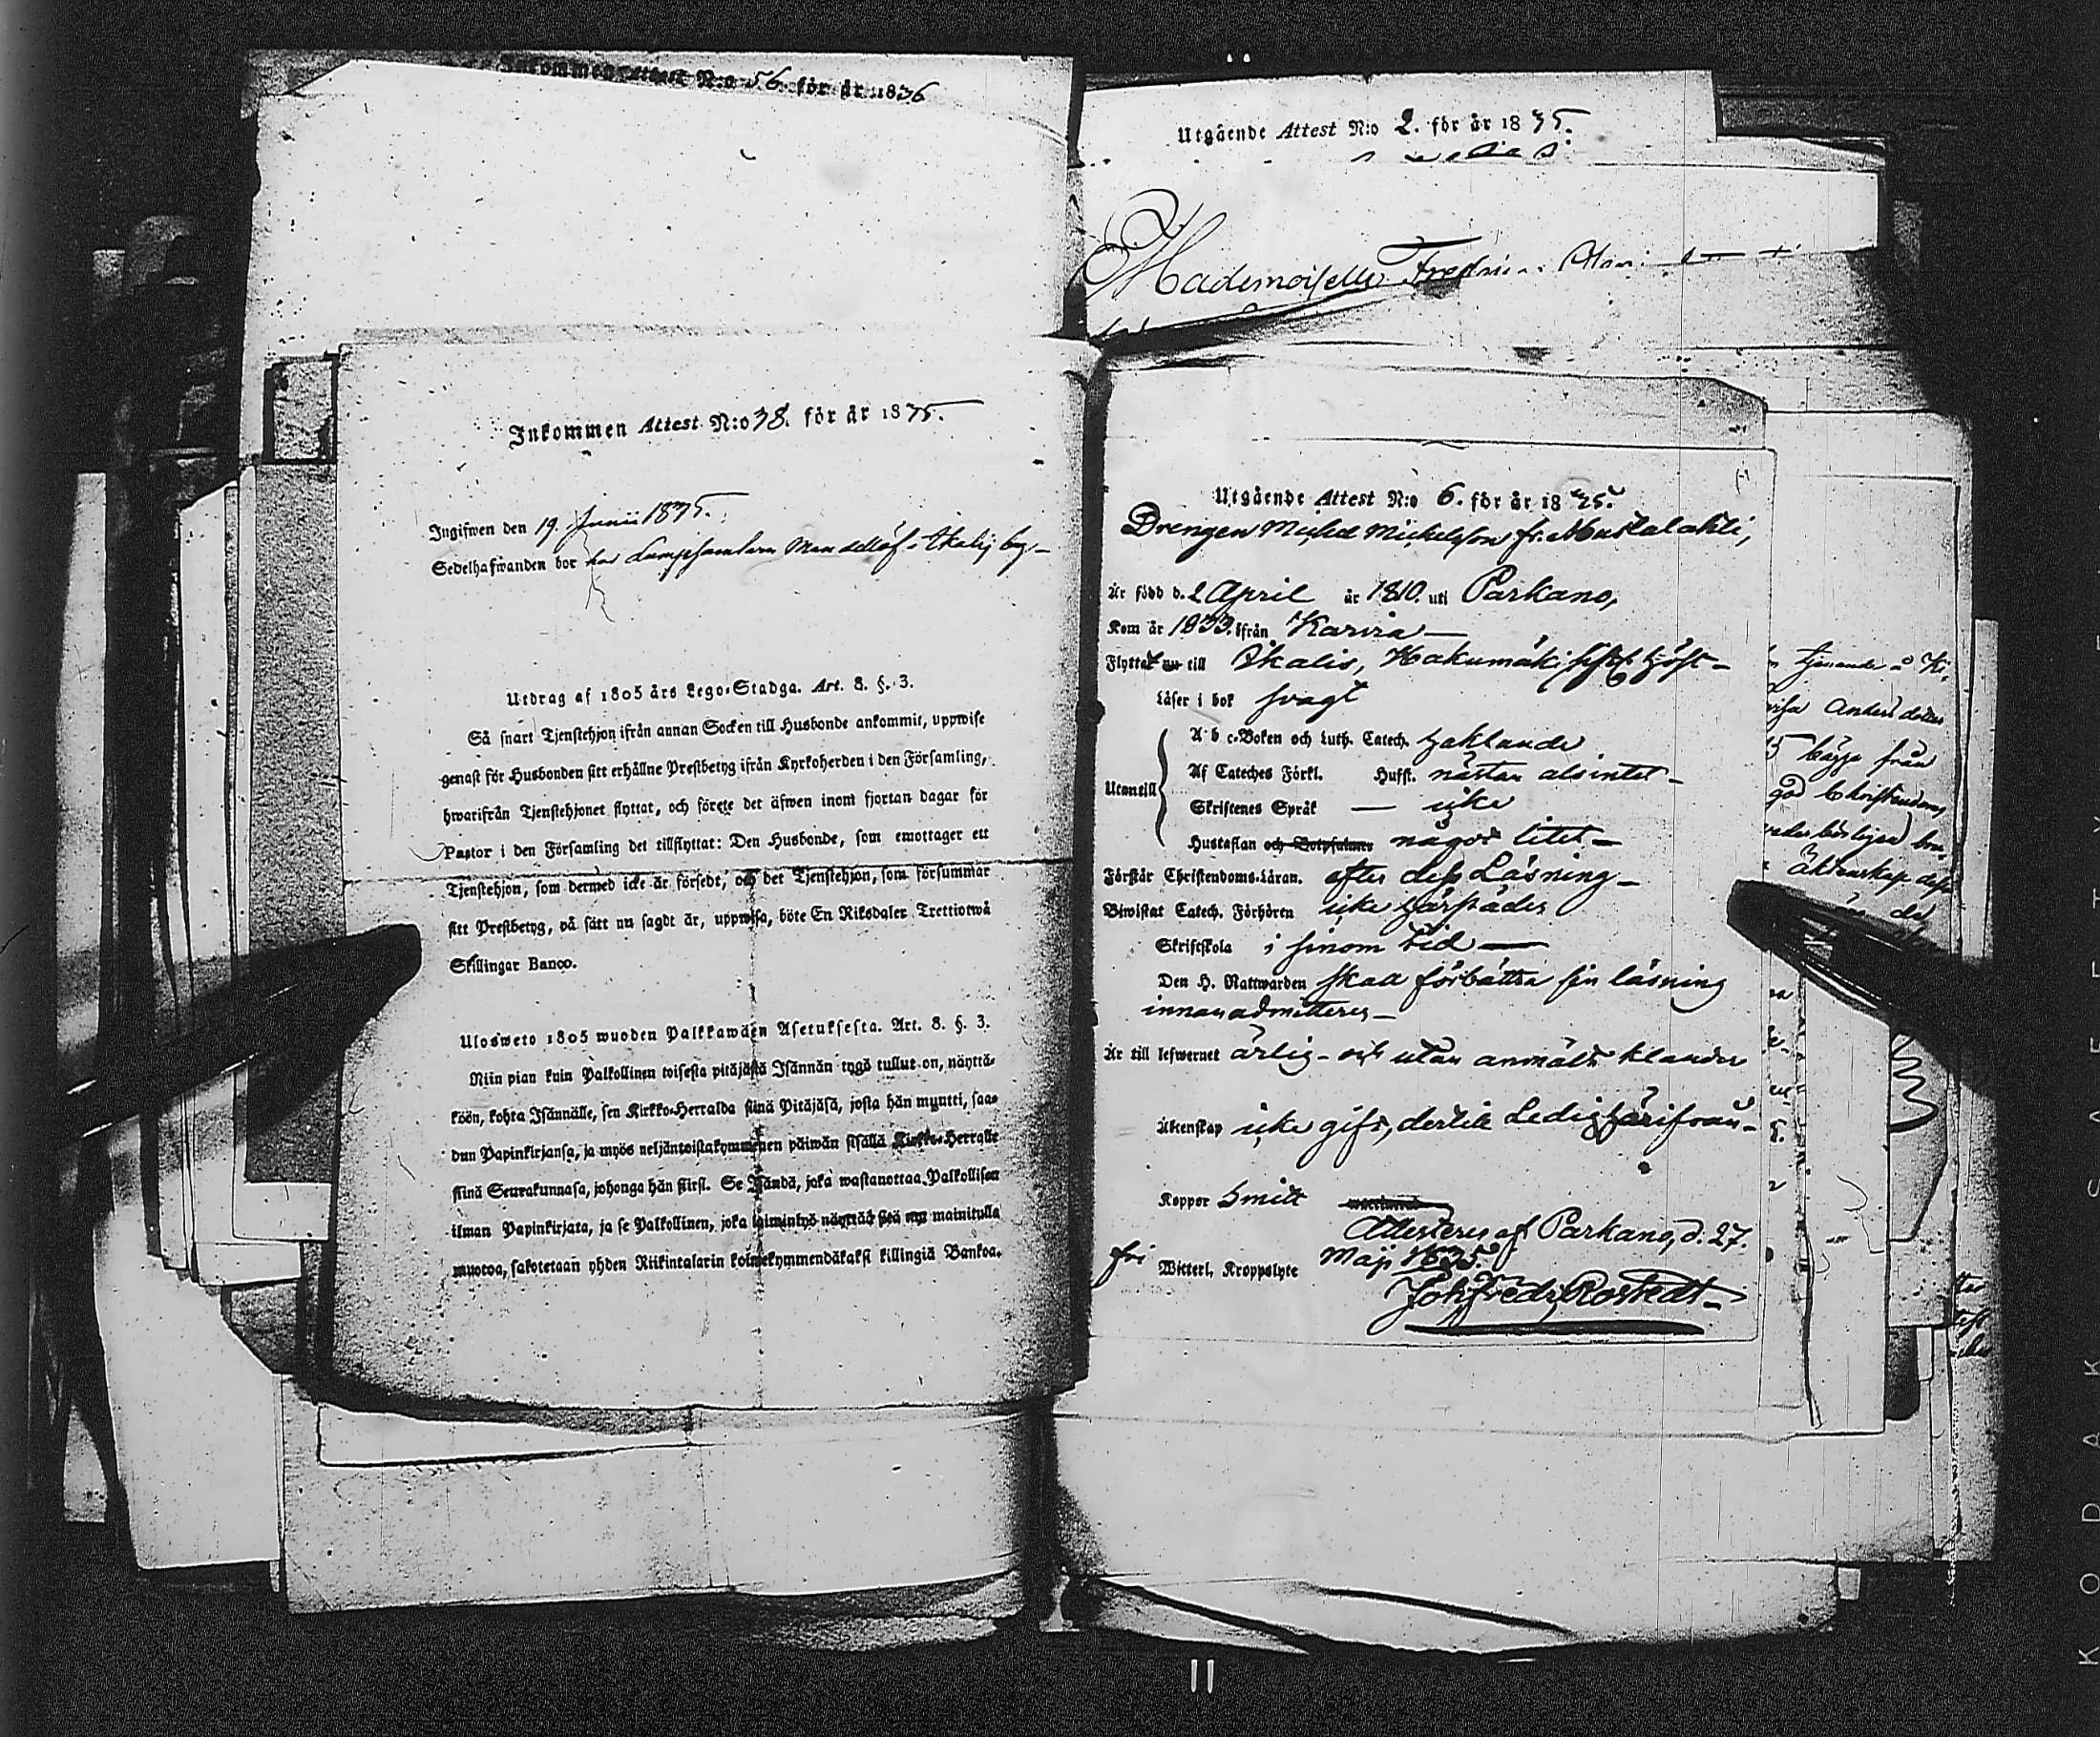 Inkommen Attest N:o 56. för år 1836
Inkommen Attest N:o 38. för år 1835.
Ingifwen den 19. Junii 1835.
Sedelhafwanden bor hos
Utdrag af 1805 års Lego-Stadga. Art. 8. §. 3.
Så snart Tjenstehjon ifrån annan Socken till Husbonde ankommit, uppwise
genast för Husbonden sitt erhållne Prestbetyg ifrån Kyrkoherden i den Församling,
hwarifrån Tjenstehjonet flyttat, och förete det äfwen inom fjortan dagar för
Pastor i den Församling det tillflyttat: Den Husbonde, som emottager ett
Tjenstehjon, som dermed icke är försedt, och det Tjenstehjon, som försummar
sitt Prestbetyg, på sätt nu sagdt är, uppwisa, böte En Riksdaler Trettiotwå
Skillingar Banco.
Ulosweto 1805 wuoden Palkkawäen Asetuksesta. Art. 8. §. 3.
Niin pian kuin Palkollinen toisesta pitäjästä Isännän tygö tullut on, näyttä-
köön, kohta Isännälle, sen Kirkko-Herralda siinä Pitäjäsä, josta hän myntti, saa-
dun Papinkirjansa, ja myös neljäntoistakymmenen päiwän sisällä Kirkko-Herralle
siinä Seurakunnasa, johonga hän siirsi. Se Isändä, joka wastanottaa Palkollisen
ilman Papinkirjata, ja se Palkollinen, joka laimintyö näyttää sitä nyt mainitulla
muotoa, sakotetaan yhden Riikintalarin kolmekymmendäkaksi killingiä Bankoa.
Utgående Attest N:o 2. för år 1835.
Mademoiselle
Utgående Attest N:o 6. för år 1835.
Drengen Mickelsson fr.
Är född d. 2 April år 1810. uti Parkano,
Kom år 1833. ifrån Karvia —
Flyttat nu till Ikalis, Hakumäki
Läser i bok svagt
Utantill
A b c-Boken och Luth. Catech. taklande
Af Cateches Förkl. Hufst. nästan alsintet —
Skriftenes Språk — icke
Hustaflan och Botpsalmer något litet —
Förstår Christendoms-Läran. efter dess Läsning —
Biwistat Catech. Förhören icke härstädes
Skriftskola i sinom tid —
Den H. Nattwarden skall förbättra sin läsning
innan admitteres —
Är till lefwernet ärlig — och utan anmält klander
Äktenskap icke gift, dertill Ledig härifrån —
Koppor Smitt
Attesteres af Parkano, d. 27.
Maji 1835.
Witterl. Kroppslyte fri
Joh. Fredr. Rostedt —
tjenande
Anders dotter
bägge från
god Christendoms
Äktenskap
KODAK SAFETY